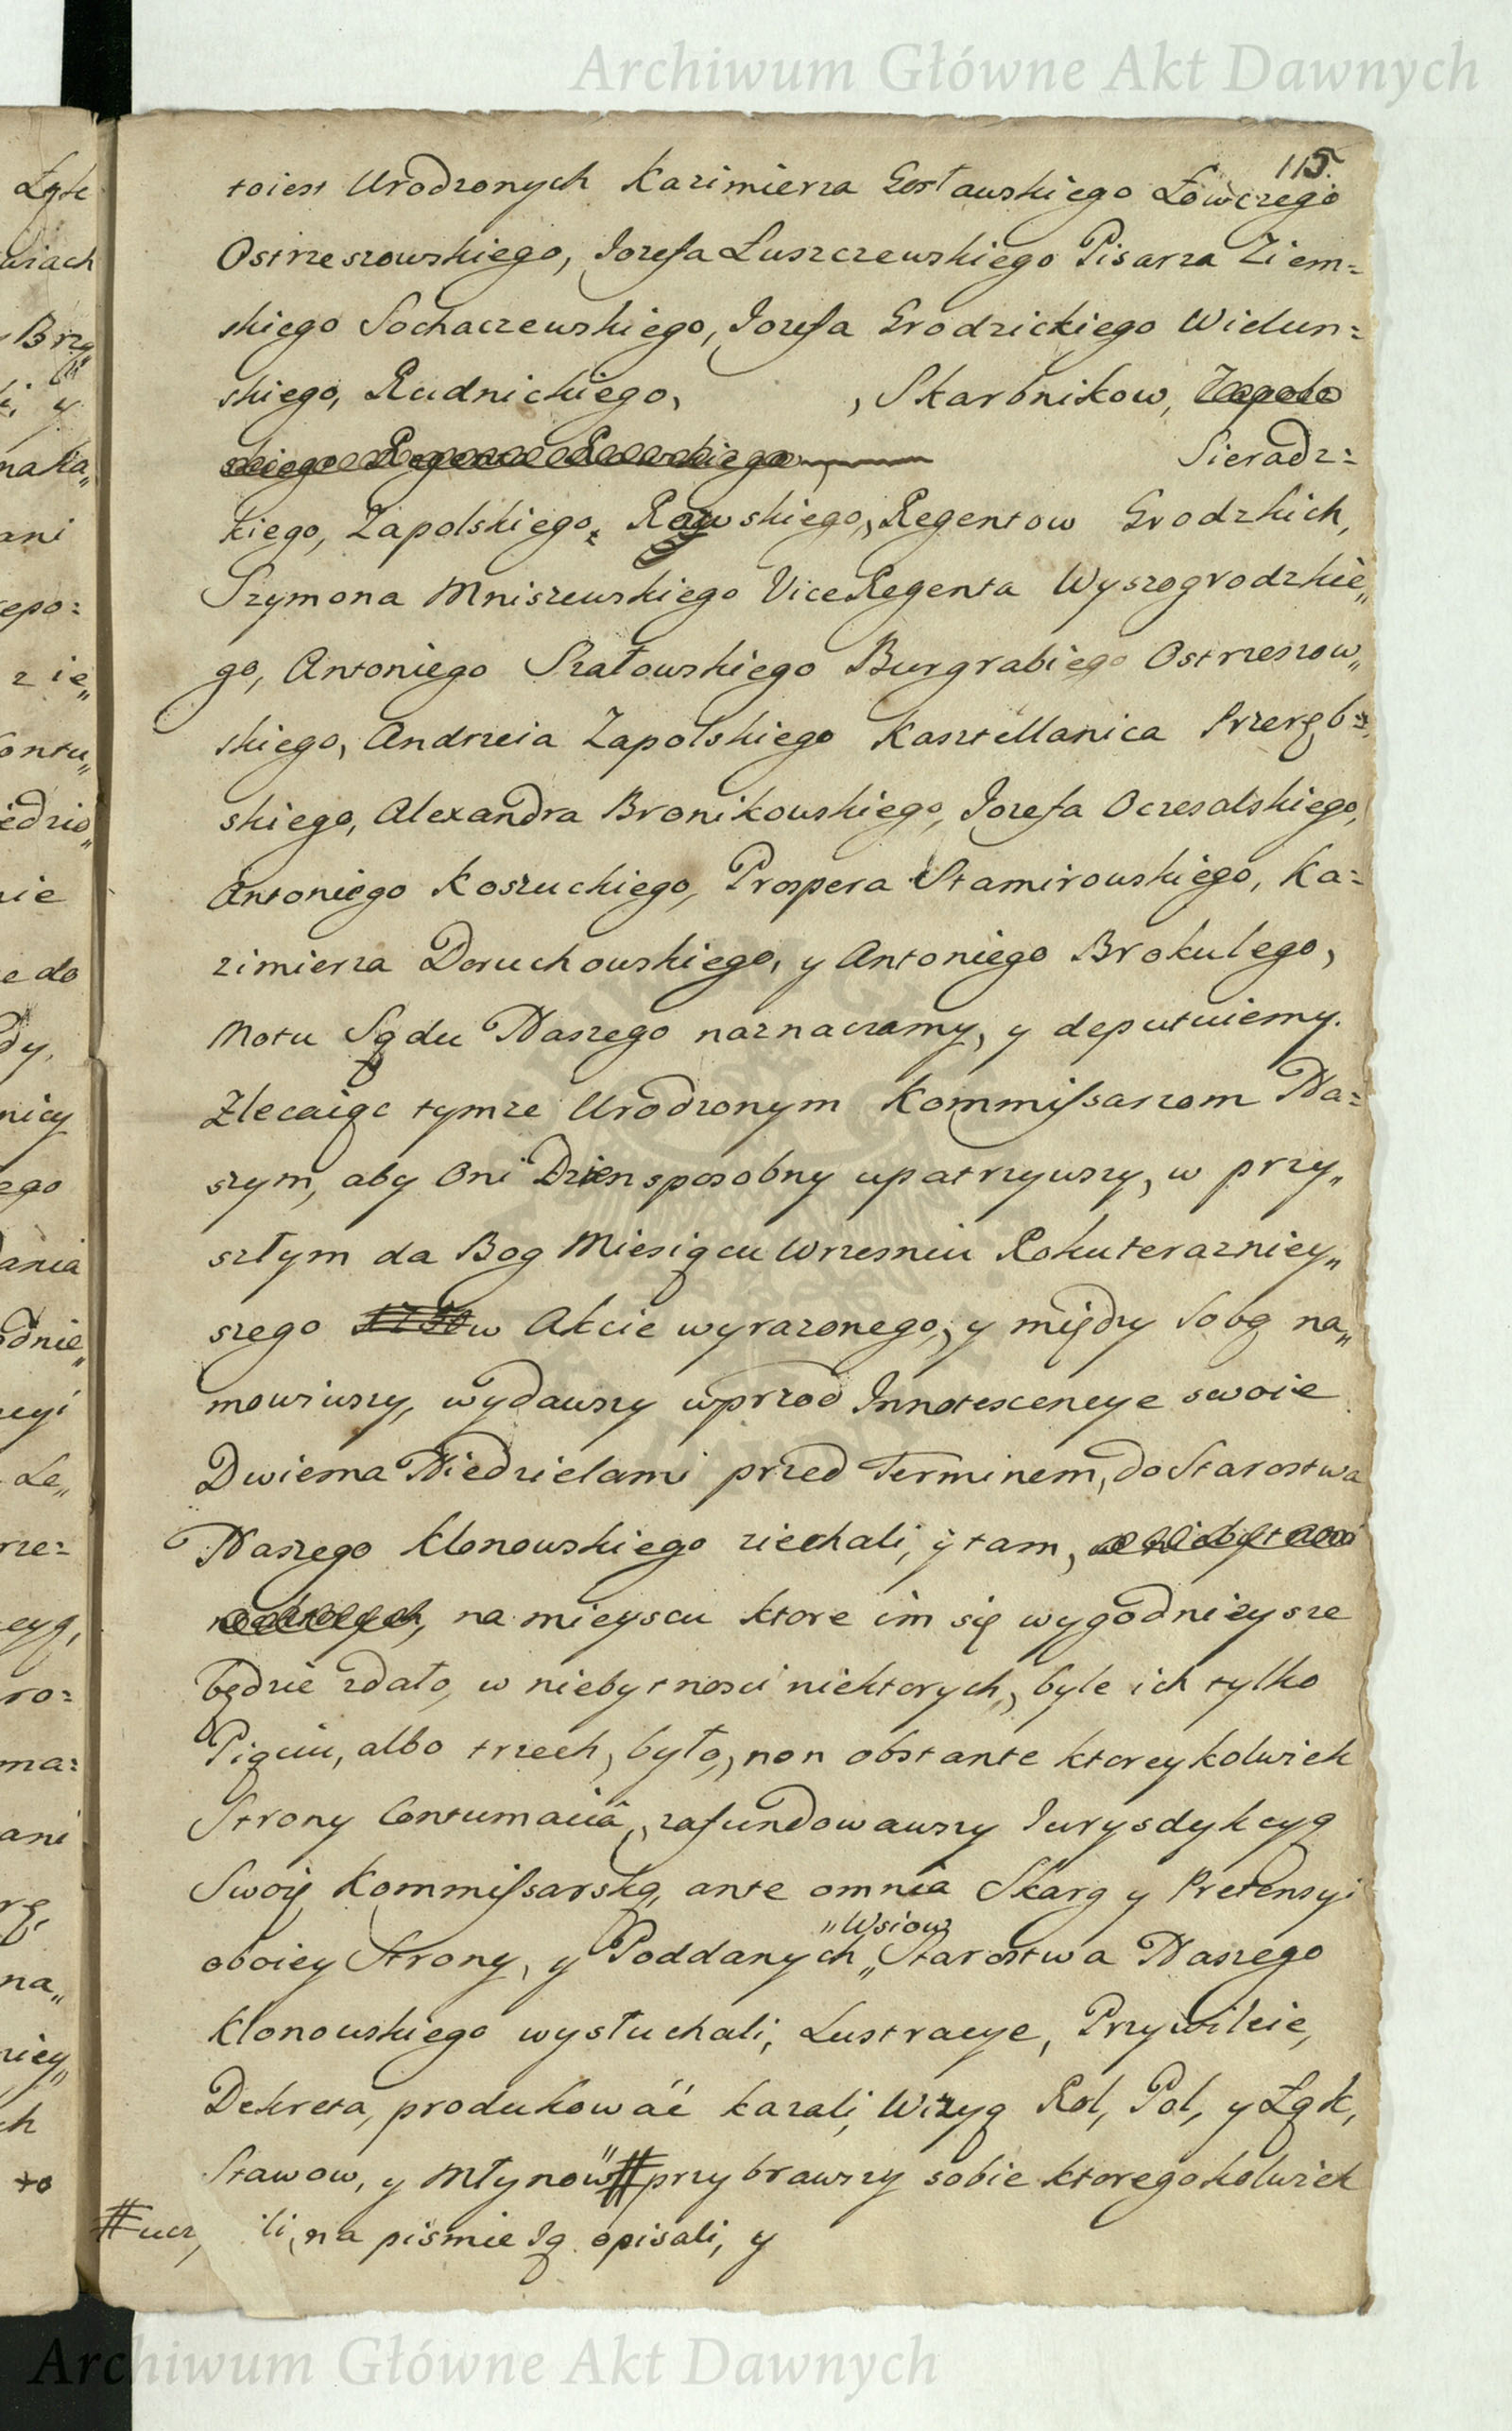 Archiwum Główne Akt Dawnych
115.
toiest Urodzonych Kazimierza Gorzawskiego Łowczego
Ostrzeszowskiego, Jozefa Łuszczewskiego Pisarza Ziem=
skiego Sochaczewskiego, Jozefa Grodzickiego Wielun=
skiego, Rudnickiego, , Skarbnikow, Zapol
skiego Regenta Rawskiego, Sieradz=
kiego, Zapolskiego, Rawskiego, Regentow Grodzkich,
Szymona Mniszewskiego ViceRegenta Wyszogrodzkie„
go, Antoniego Szałowskiego Burgrabiego Ostrzeszow„
skiego, Andrzeia Zapolskiego Kasztellanica Przeręb=
skiego, Alexandra Bronikowskiego, Jozefa Oczesalskiego,
Antoniego Koszuckiego, Prospera Stamirowskiego, Ka=
zimierza Doruchowskiego, y Antoniego Brokulego,
Motu Sądu Naszego naznaczamy, y deputuiemy.
Zlecaiąc tymze Urodzonym Kommissarzom Na=
szym, aby Oni Dzien sposobny upatrzywszy, w przy„
szłym da Bog Miesiącu Wrzesniu Roku terazniey„
szego w Akcie wyrazonego, y między Sobą na„
mowiwszy, wydawszy wprzod Innotescencye swoie
Dwiema Niedzielami przed Terminem, do Starostwa
Naszego Klonowskiego ziechali, y tam,
na mieyscu ktore im się wygodnieysze
będzie zdało, w niebytnosci niektorych, byle ich tylko
Pięciu, albo trzech, było, non obstante ktoreykolwiek
Strony Contumaciâ, zafundowawszy Jurysdykcyą
Swoię Kommissarską, ante omnia Skarg y Pretensyi
„Wsiow
oboiey Strony, y Poddanych „ Starostwa Naszego
Klonowskiego wysłuchali, Lustracye, Przywileie,
Dekreta, produkować kazali, Wizyą Rol, Pol, y Łąk,
Stawow, y Młynow # przybrawszy sobie ktoregokolwiek
# ucz ili, na pismie Ją opisali, y
Łąk
Brzę
y
naka„
ani
repo:
zie„
ontu„
edzio„
nie
e do
dy,
nicy
ego
ania
odnie„
Le„
rze=
cyą,
ro=
ma:
ani
na„
niey„
ch
to
Archiwum Główne Akt Dawnych